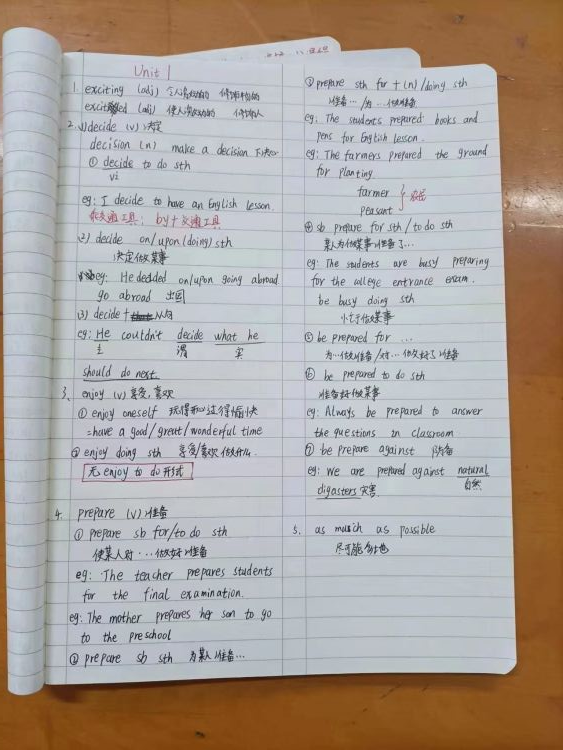 Unit 1
1. exciting (adj) 令人激动的 修饰物的
excited (adj) 使人激动的 修饰人
2. 1) decide (v) 决定
decision (n) make a decision 下决心
① decide to do sth
vi
eg: I decide to have an English lesson.
乘交通工具: by+交通工具
2) decide on/upon (doing) sth
决定做某事
eg: He decided on/upon going abroad
go abroad 出国
3) decide + 从句
eg: He couldn't decide what he
主 谓 宾
should do next.
3. enjoy (v) 享受, 喜欢
① enjoy oneself 玩得和过得愉快
=have a good/great/wonderful time
② enjoy doing sth 享受/喜欢做什么
无 enjoy to do 形式
4. prepare (v) 准备
① prepare sb for/to do sth
使某人对…做好准备
eg: The teacher prepares students
for the final examination.
eg: The mother prepares her son to go
to the preschool
② prepare sb sth 为某人准备…
③ prepare sth for + (n)/doing sth
准备…/为…做准备
eg: The students prepared books and
pens for English lesson.
eg: The farmers prepared the ground
for planting.
farmer
peasant 农民
④ sb prepare for sth/to do sth
某人为做某事准备了…
eg: The students are busy preparing
for the college entrance exam.
be busy doing sth
忙于做某事
⑤ be prepared for …
为…做准备/对…做好了准备
⑥ be prepared to do sth
准备好做某事
eg: Always be prepared to answer
the questions in classroom.
⑦ be prepare against 防备
eg: We are prepared against natural
自然
digasters 灾害
5. as much as possible
尽可能多地